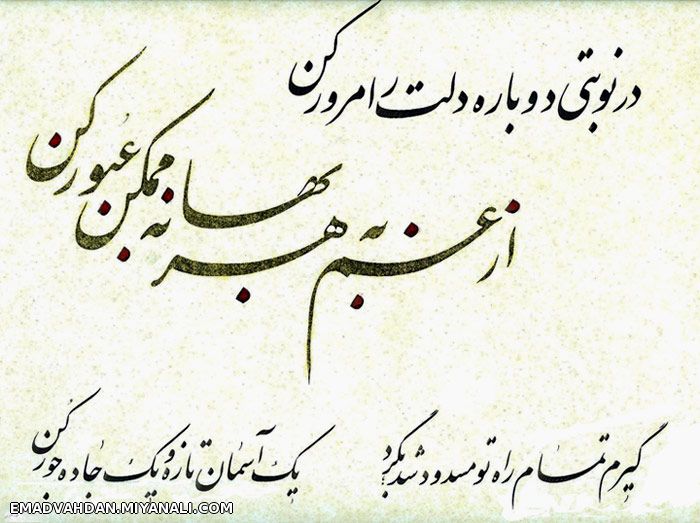 در نوبتی دوباره دلت را مرور کن
از غم به هر بهانه ممکن عبور کن
گیرم تمام راه تو مسدود شد بگرد
یک آسمان تازه و یک جاده جور کن
EMADVAHDAN.MIYANALI.COM